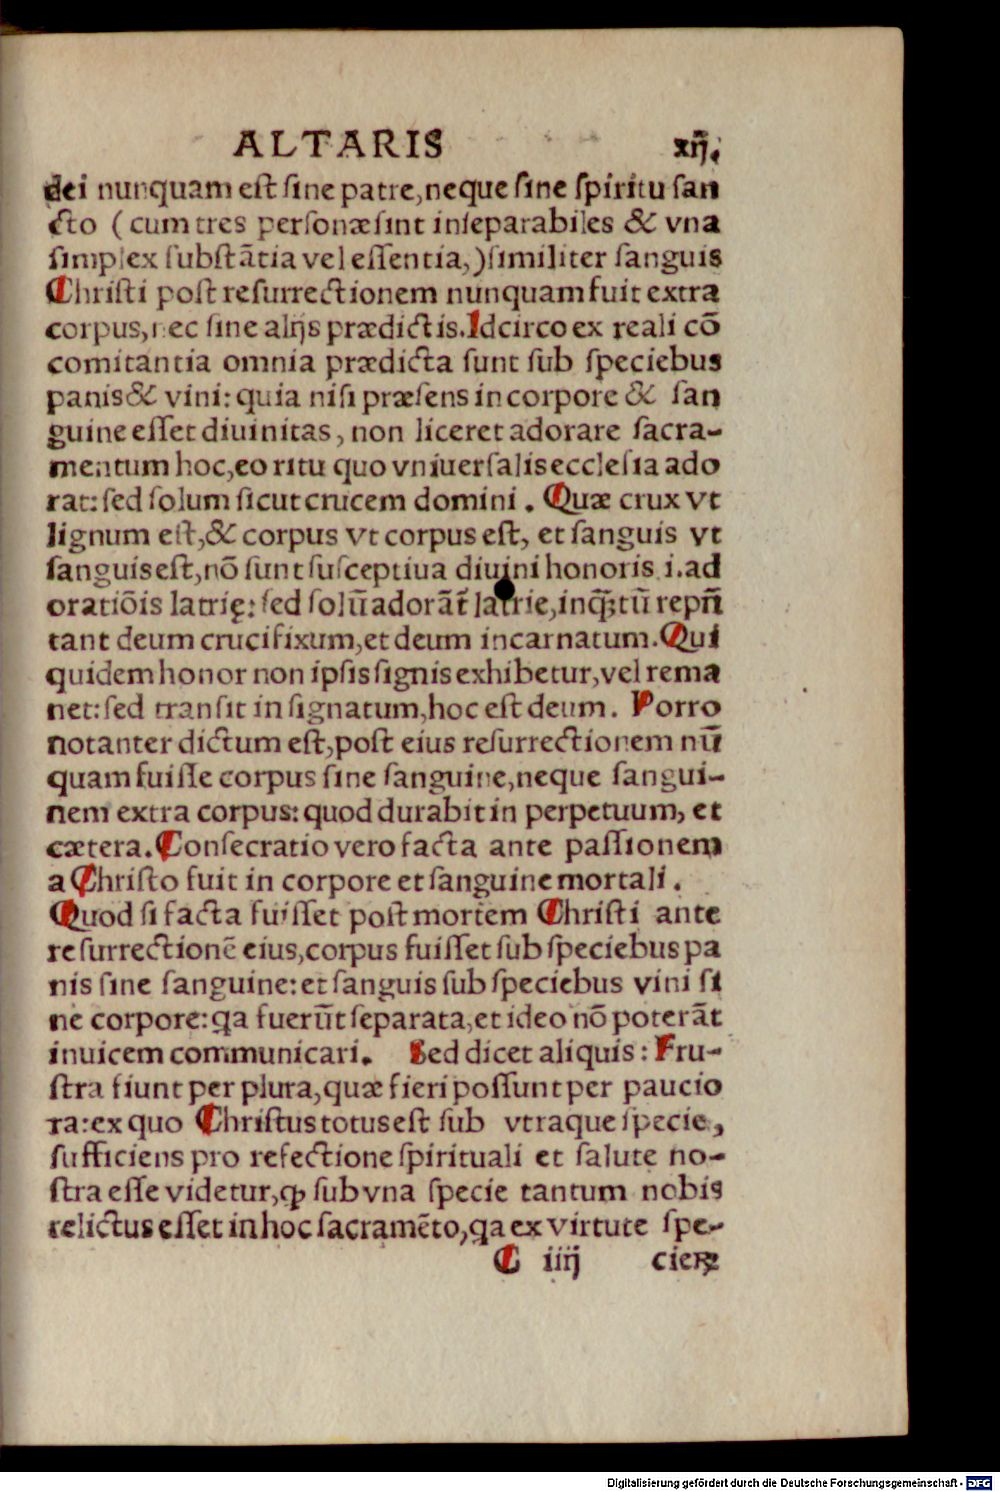 ALTARIS xij.
dei nunquam est sine patre, neque sine spiritu san
cto (cum tres personæ sint inseparabiles & vna
simplex substãtia vel essentia,) similiter sanguis
Christi post resurrectionem nunquam fuit extra
corpus, nec sine alijs prædictis. Idcirco ex reali cõ
comitantia omnia prædicta sunt sub speciebus
panis & vini: quia nisi præsens in corpore & san
guine esset diuinitas, non liceret adorare sacra-
mentum hoc, eo ritu quo vniuersalis ecclesia ado
rat: sed solum sicut crucem domini. Quæ crux vt
lignum est, & corpus vt corpus est, et sanguis vt
sanguis est, nõ sunt susceptiua diuini honoris .i. ad
oratiõis latrię: sed solũ adorãt̃ latrie, inq̃ꝫtũ repñ
tant deum crucifixum, et deum incarnatum. Qui
quidem honor non ipsis signis exhibetur, vel rema
net: sed transit in signatum, hoc est deum. Porro
notanter dictum est, post eius resurrectionem nũ
quam fuisse corpus sine sanguine, neque sangui-
nem extra corpus: quod durabit in perpetuum, et
cætera. Consecratio vero facta ante passionem
a Christo fuit in corpore et sanguine mortali.
Quod si facta fuisset post mortem Christi ante
resurrectionẽ eius, corpus fuisset sub speciebus pa
nis sine sanguine: et sanguis sub speciebus vini si
ne corpore: qa fuerũt separata, et ideo nõ poterãt
inuicem communicari. Sed dicet aliquis: Fru-
stra fiunt per plura, quæ fieri possunt per paucio
ra: ex quo Christus totus est sub vtraque specie,
sufficiens pro refectione spirituali et salute no-
stra esse videtur, ꝙ sub vna specie tantum nobis
relictus esset in hoc sacramẽto, qa ex virtute spe-
C iiij cieꝝ
Digitalisierung gefördert durch die Deutsche Forschungsgemeinschaft - DFG